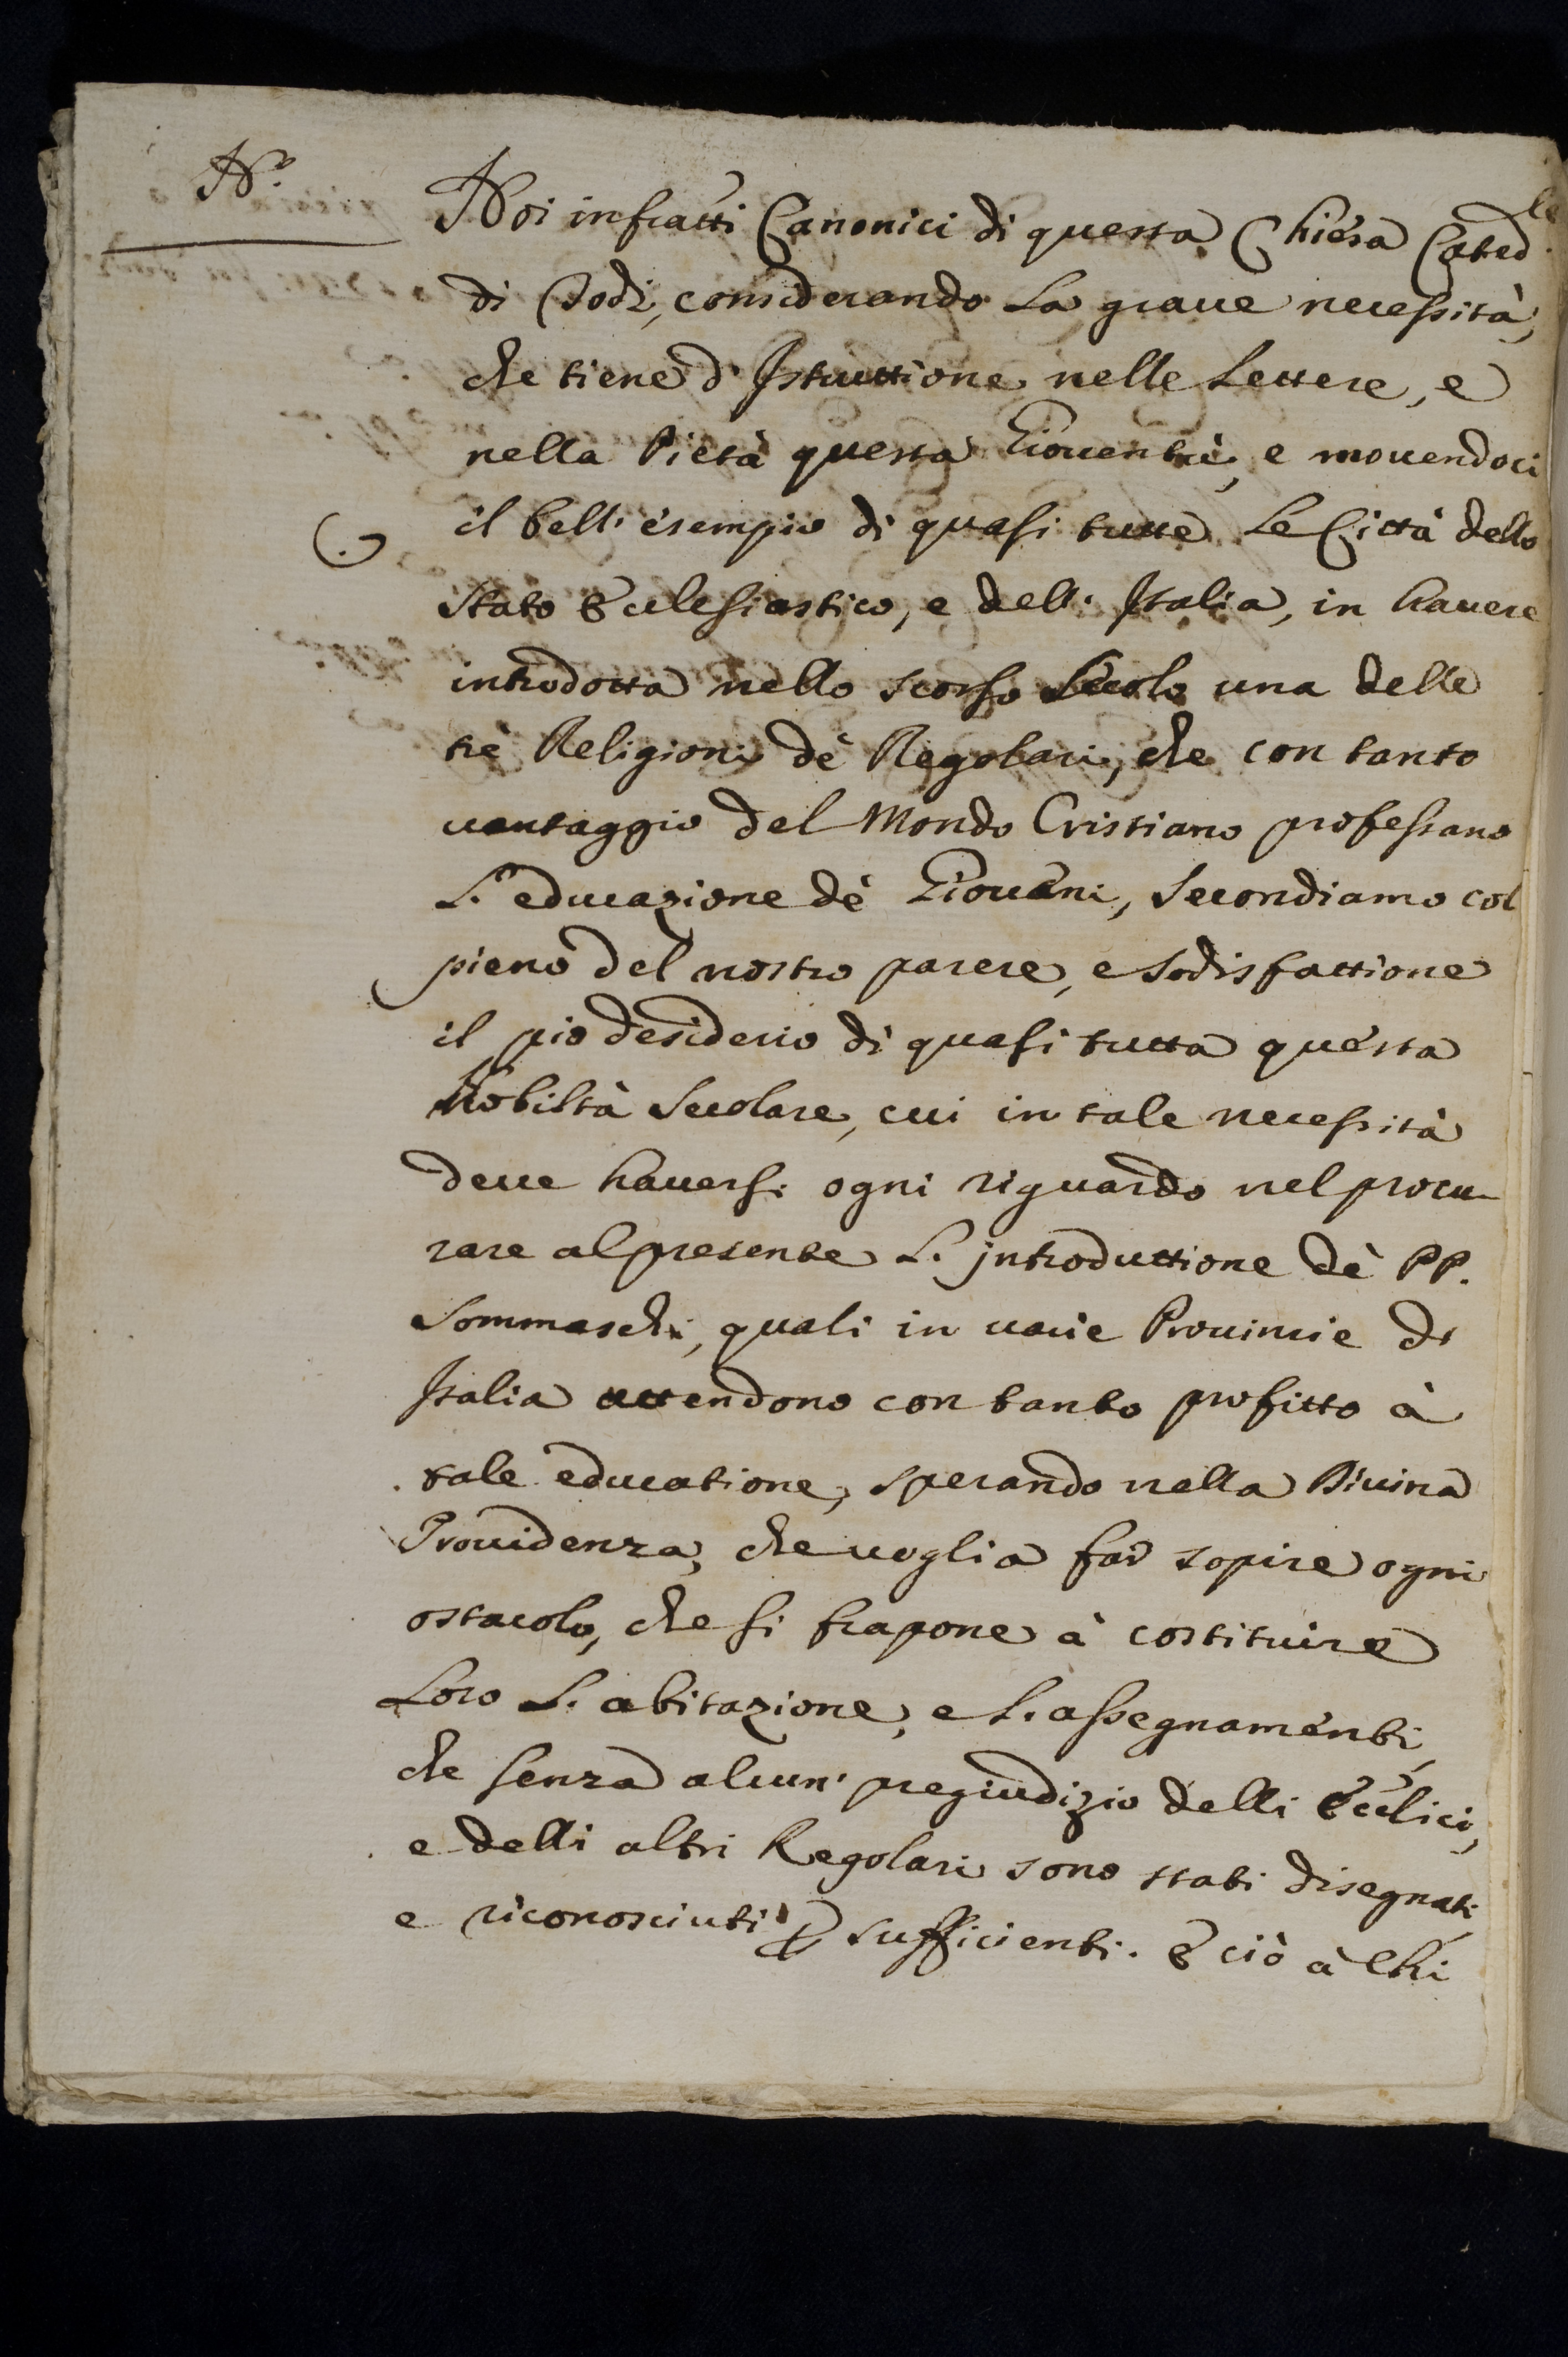 N.º
Noi infra~tti Canonici di questa Chiesa Cated.le
di Todi, considerando la graue necessità,
che tiene d'Istruttione nelle Lettere, e
nella Pietà questa Giouentù, e mouendoci
il bell'esempio di quasi tutte Le Città dello
Stato Ecclesiastico, e dell'Italia, in hauere
introdotta nello scorso Secolo una delle
trè Religioni dè Regolari, che con tanto
uantaggio del Mondo Cristiano professano
L'educazione dè Giouani, Secondiamo col
pieno del nostro parere, e sodisfattione
il pio desiderio di quasi tutta questa
Nobiltà Secolare, cui in tale necessità
deue hauersi ogni riguardo nel procu-
rare al presente L'introduttione dè PP.
Sommaschi, quali in uarie Prouincie di
Italia attendono con tanto profitto à
tale educatione, sperando nella Diuina
Prouidenza, che uoglia far sopire ogni
ostacolo, che si frapone à costituire
Loro L'abitazione, e L'assegnamenti,
che senza alcun' pregiudizio delli Ecclici,
e delli altri Regolari sono stati disegnati,
e riconosciuti sufficienti. E ciò à Chi